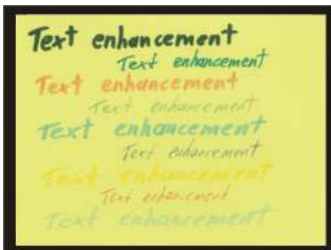 Text enhancement
Text enhancement
Text enhancement
Text enhancement
Text enhancement
Text enhancement
Text enhancement
Text enhancement
Text enhancement